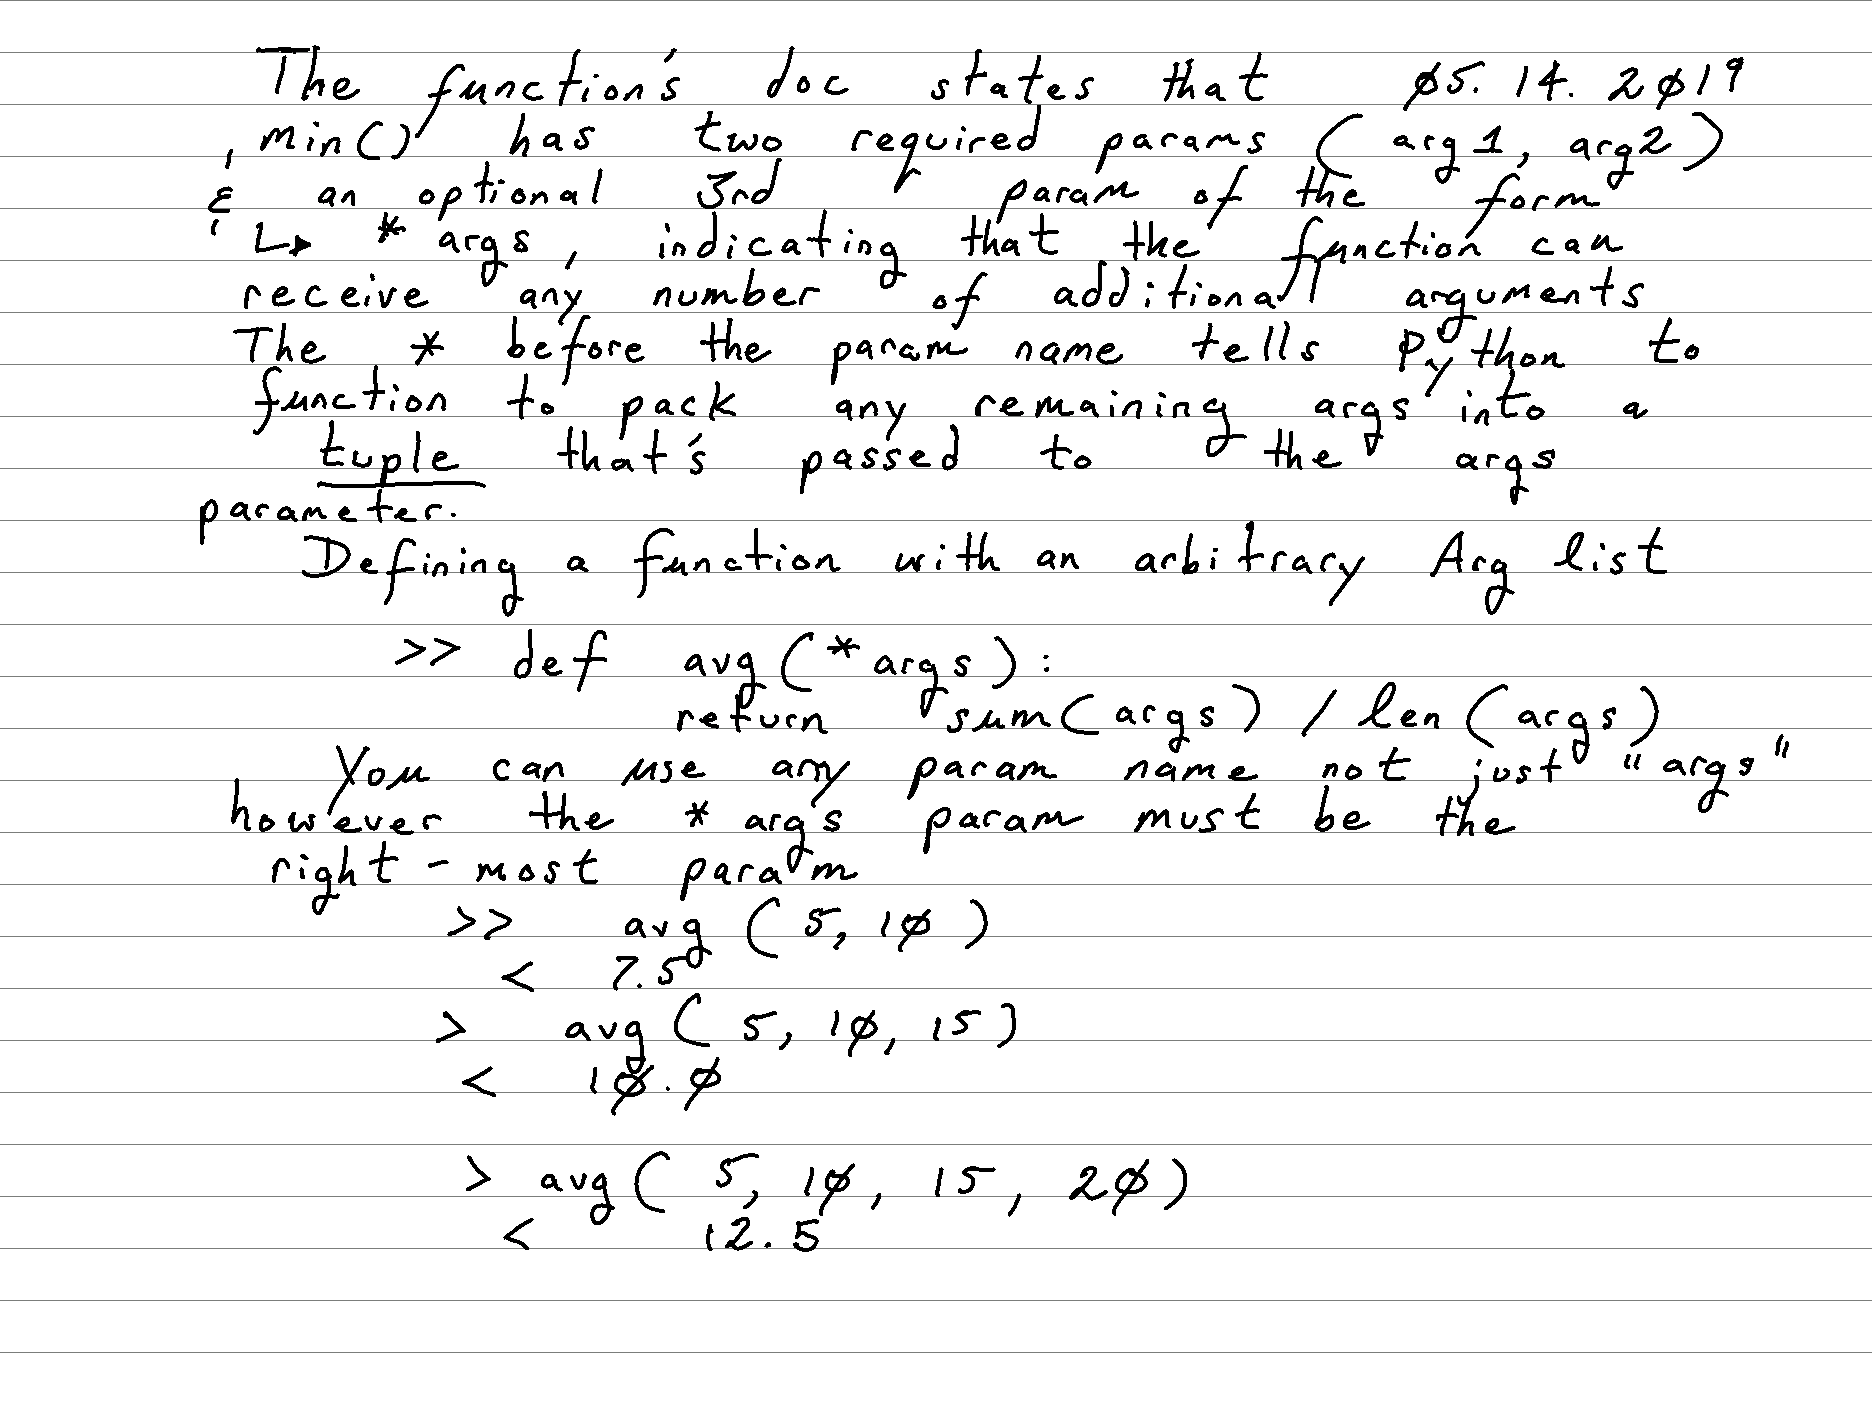 The function's doc states that 05.14.2019
min() has two required params (arg1, arg2)
& an optional 3rd param of the form
↳ *args, indicating that the function can
receive any number of additional arguments
The * before the param name tells Python to
function to pack any remaining args into a
tuple that's passed to the args
parameter.
Defining a function with an arbitrary Arg list
>> def avg(*args):
return sum(args) / len(args)
You can use any param name not just "args"
however the *args param must be the
right-most param
>> avg(5, 10)
< 7.5
> avg(5, 10, 15)
< 10.0
> avg(5, 10, 15, 20)
< 12.5